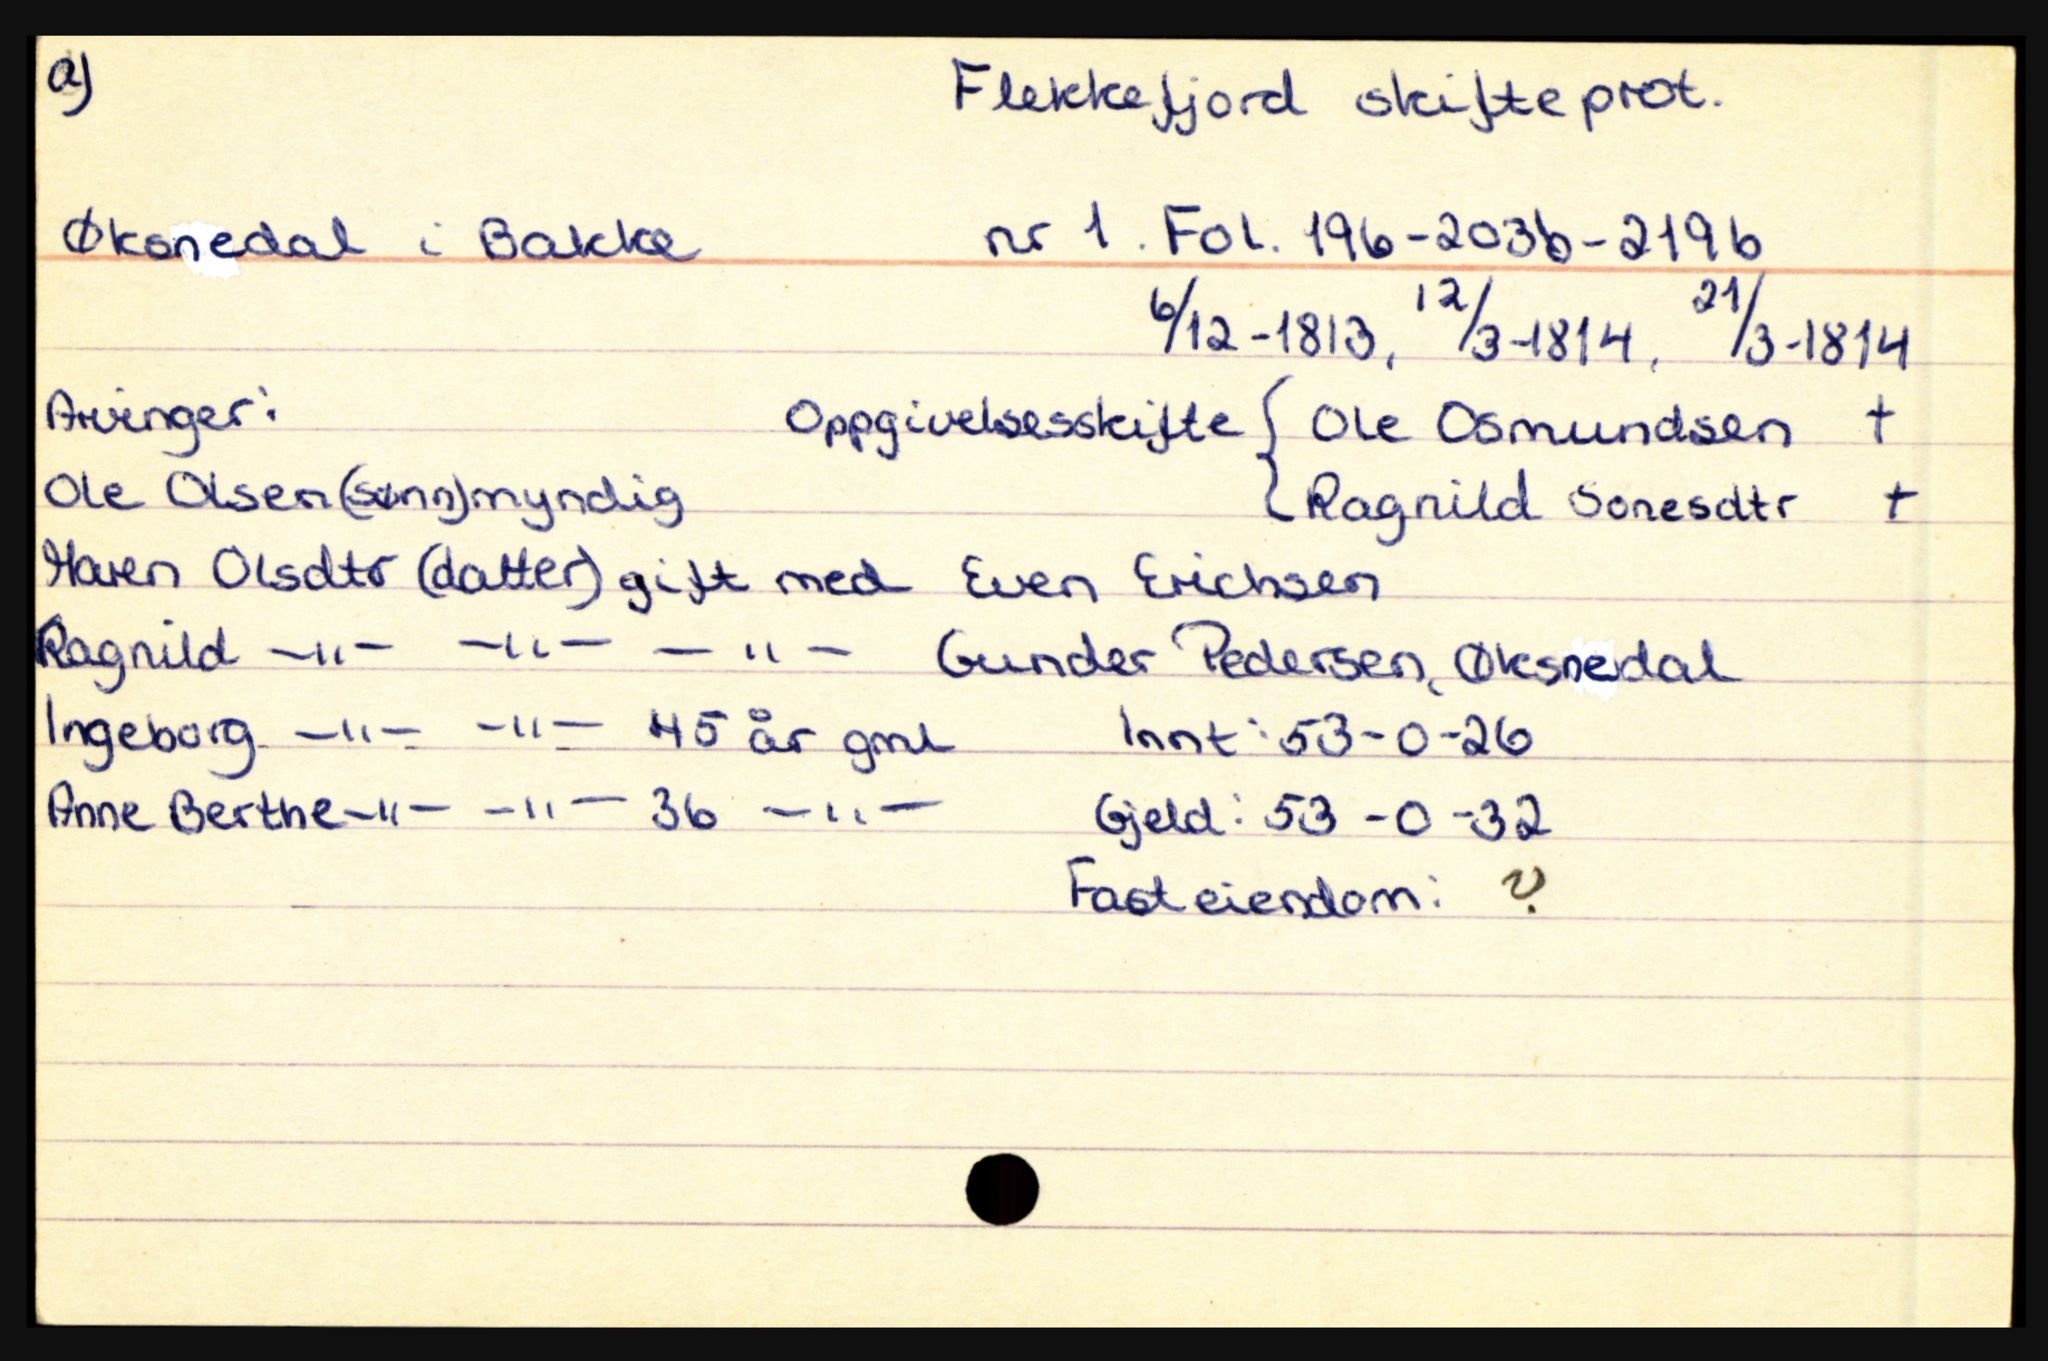 a)
Flekkefjord skifteprot.
Øksnedal i Bakke nr 1. Fol. 196-203b-219b
6/12-1813, 12/3-1814, 21/3-1814
Arvinger: Oppgivelsesskifte { Ole Osmundsen †
Ole Olsen (sønn) myndig { Ragnild Sonesdtr †
Maren Olsdtr (datter) gift med Even Erichsen
Ragnild -"- -"- -"- Gunder Pedersen, Øksnedal
Ingeborg -"- -"- 45 år gml Innt: 53-0-26
Anne Berthe -"- -"- 36 -"- Gjeld: 53-0-32
Fast eiendom: ?